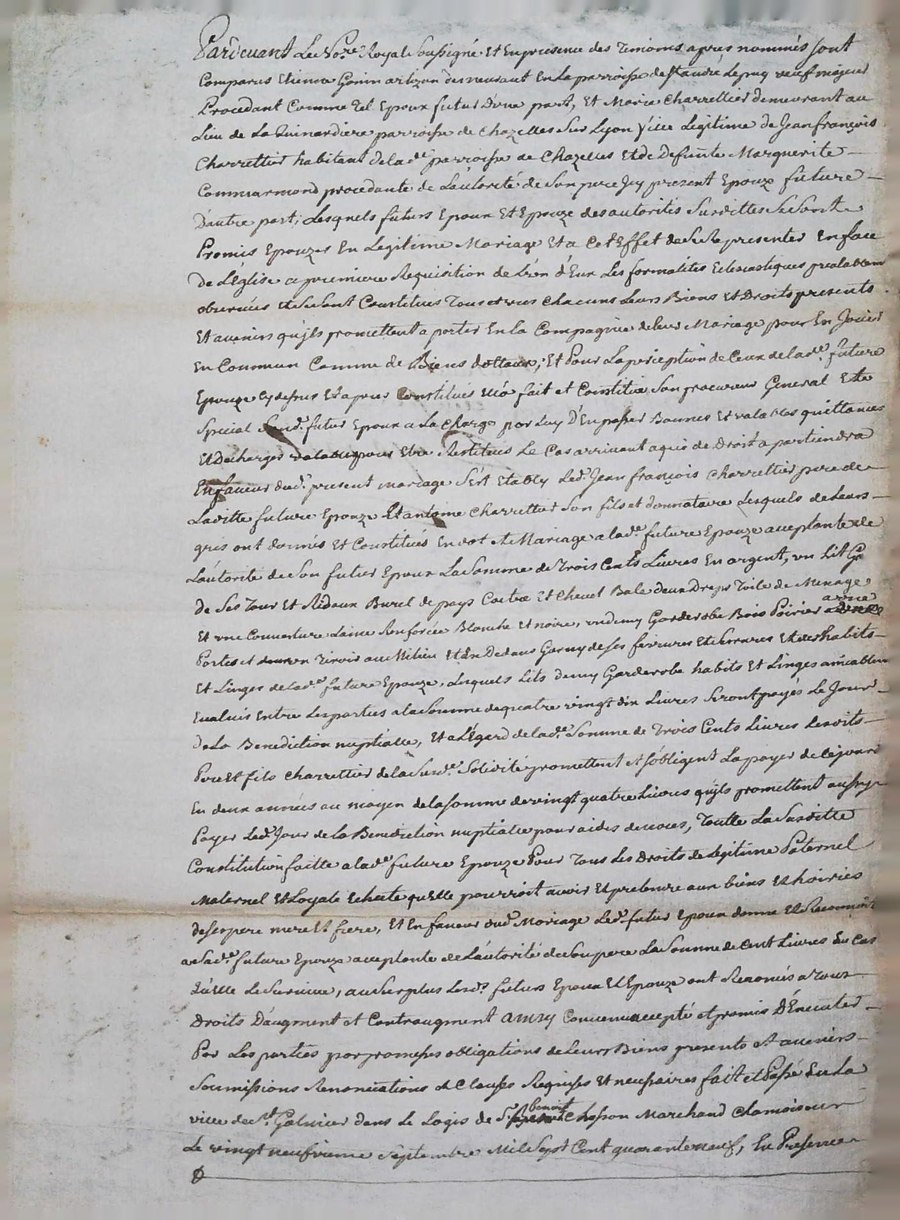 Pardevant Le No.re Royal Soussigné Et En presence des Temoins apres nommés sont
Comparus Etienne Gonin artizan demeurant En La parroisse de St andré Le puy veuf majeur
Procedant Comme tel Epoux futur D'une part, Et Marie Charrettier demeurant au
Lieu de La Guinardiere parroisse de Chazelles Sur Lyon fille Legitime de Jean françois
Charrettier habitant de la de parroisse de Chazelles Et de Deffunte Marguerite
Commarmond procedante de L'autorité de Son pere Icy present Epouze future
D'autre part, Lesquels futurs Epoux Et Epouze des autorités Susdittes Se Sont
Promis Epouzer En Legitime Mariage Et a Cet Effet de Se Representer En face
de L'Eglise a premiere Requisition de L'un d'Eux Les formalités Eclesiastiques prealablem
observées Et Se Sont Constitués Tous et uns Chacuns Leurs Biens Et Droits presents
Et avenirs qu'ils promettent aporter En La Compagnie de leur Mariage pour En Jouir
En Commun Comme de Biens dottaux; Et Pour La perception de Ceux de la de future
Epouze Cydessus Et apres Constitués Elle a fait et Constitué Son procureur General Et
Special Led. futur Epoux a La Charge par Luy D'En passer Bonnes Et valables quittances
Et Decharges pour Etre Restitués Le Cas arrivant a qui de Droit apartiendra
En faveur dud. present mariage S'est Etably Led. Jean françois Charrettier pere de
Laditte future Epouze Et antoine Charrettier Son fils et donnataire Lesquels de Leurs
grés ont donnés Et Constitués En dot Et Mariage a la de future Epouze acceptante de
L'autorité de Son futur Epoux La Somme de Trois Cents Livres En argent, un Lit Garny
de Ses Tour Et Rideaux Burel de pays Coetre Et Chevet Bale deux Draps Toile de Menage
Et une Couverture Laine Renforcée Blanche et noire, un demy Garderobe Bois Poirier a une
Portes et Tiroir au Milieu Et En Dedans Garny de Ses ferrures Et Serrures Et Ses habits
Et Linges de la de future Epouze, Lesquels Lits Demy Garderobe habits Et Linges amiablem
Evalués Entre Les parties a la Somme de quatre vingt dix Livres Seront payés Le Jour
de La Benediction nuptialle, Et a L'Egard de la de Somme de Trois Cents Livres Lesdits
Pere Et fils Charrettier de La Susd. Solidité promettent Et S'obligent La payer de Cejourd
En deux années au moyen de la Somme de vingt quatre Livres qu'ils promettent aussy
Payer Led. Jour de La Benediction nuptialle pour aides de noces, Toutte La Susditte
Constitution faitte a la de future Epouze Pour Tous Les Droits de Legitime Paternel
Maternel Et Loyale Echeute qu'elle pourroit avoir Et pretendre aux biens Et hoiries
de Ses pere mere Et frere, Et En faveur dud. Mariage Led. futur Epoux donne Et Reconnoit
a Sa de future Epouze acceptante de L'autorité de Son pere La Somme de Cent Livres En Cas
qu'elle Le Survive, au Surplus Lesd. futurs Epoux Et Epouze ont Renoncés a Tous
Droits D'augment et Contraugment ainsy Convenu accepté et promis D'Executer
Par Les parties par promesses obligations de Leurs Biens presents Et avenirs
Soumissions Renonciations et Clauses Requises Et necessaires fait et Passé En La
ville de St. Galmier dans Le Logis de Sr. benoit Chasson Marchand Chamoiseur
Le vingt neufvieme Septembre Mil Sept Cent quarante neuf, En Presence